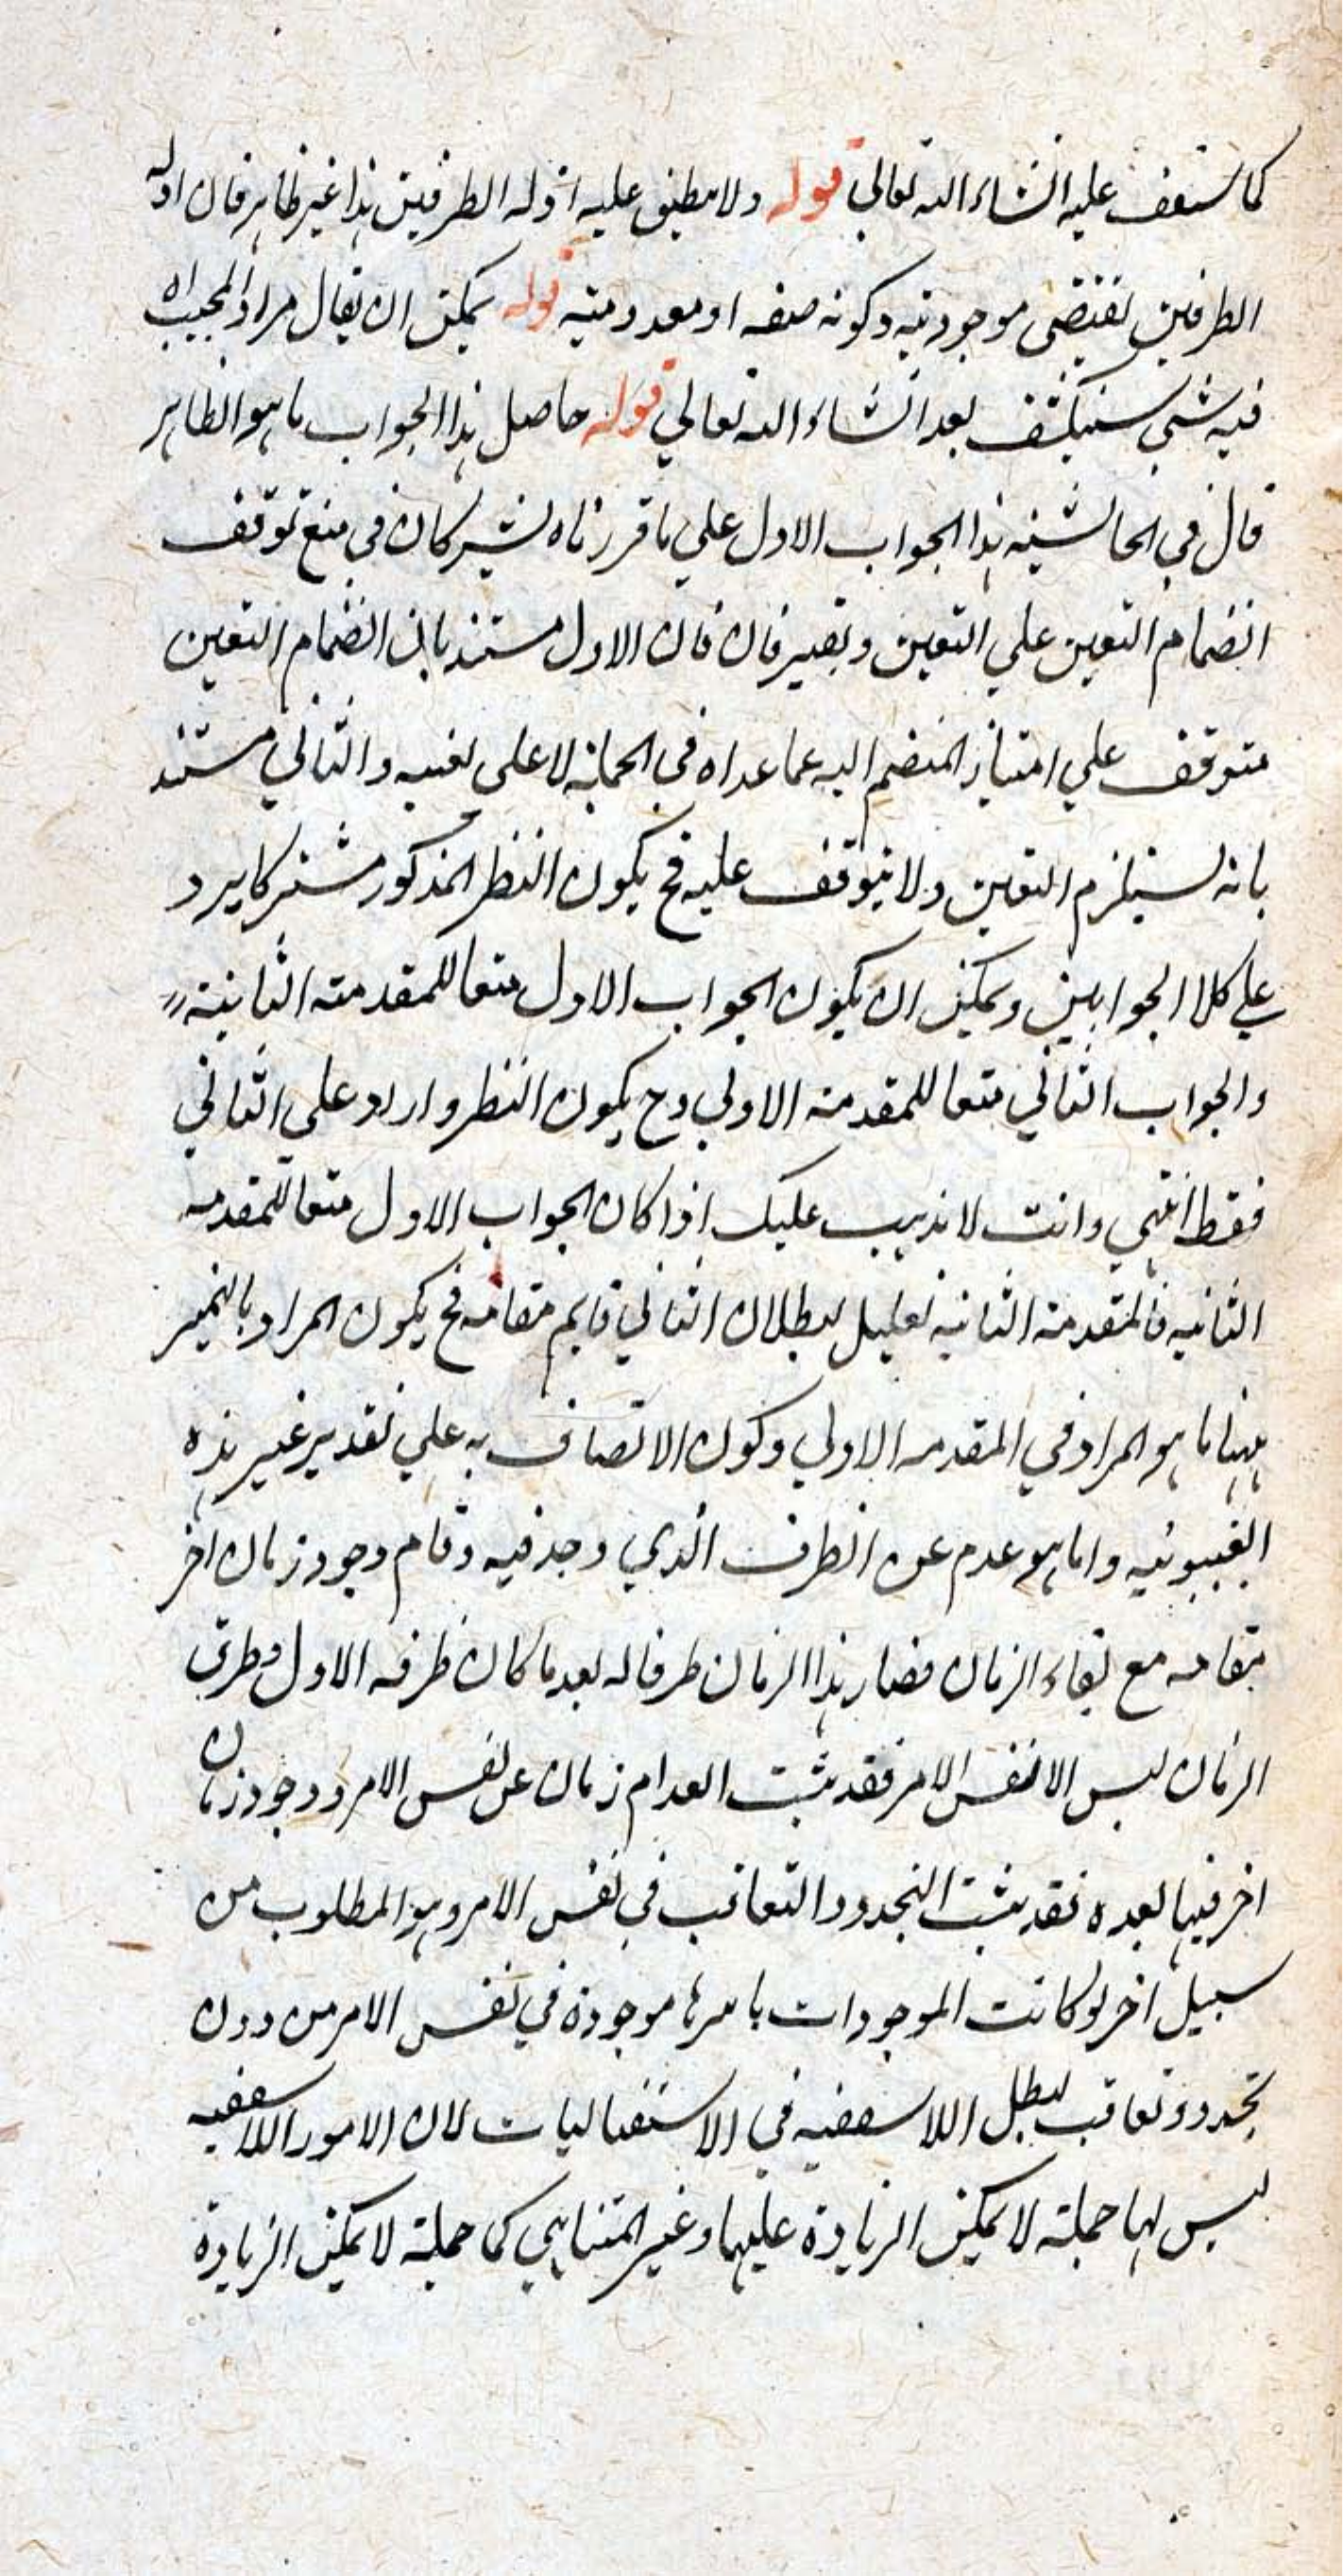 كما ستقف عليه انشاء الله تعالي قوله ولا ينطبق عليه ادلة الطرفين هذا غير ظاهر فان ادلة
الطرفين تقتضي موجوديته وكونه صفة او معدوميته قوله يمكن ان يقال مراد المجيب اه
فيه شيء سينكشف بعد انشاء الله تعالي قوله حاصل هذا الجواب ما هو الظاهر
قال في الحاشية هذا الجواب الاول علي ما قررناه يشتركان في منع توقف
انضمام التعين علي التعين فان الاول مستند بان انضمام التعين
متوقف علي امتياز المنضم اليه عما عداه في لا علي تعينه والثاني مستند
بانه يستلزم التعين ولا يتوقف عليه فح يكون النظر المذكور مشتركا يرد
علي كلا الجوابين ويمكن ان يكون الجواب الاول منعا للمقدمة الثانية
والجواب الثاني منعا للمقدمة الاولي وح يكون النظر وارد علي الثاني
فقط انتهي وانت لا يذهب عليك اذا كان الجواب الاول منعا للمقدمة
الثانية فالمقدمة الثانية تعليل لبطلان الثاني قايم مقامه فح يكون المراد بالضمير
ههنا ما هو المراد في المقدمة الاولي وكون الاتصاف به علي تقدير غير هذه
الغيبوبية وانما هو عدم عن الظرف الذي وجد فيه وقام وجود زمان اخر
مقامه مع بقاء الزمان فصار هذا الزمان ظرفا له بعد ما كان ظرفه الاول وظرف
الزمان ليس الا نفس الامر فقد ثبت انعدام زمان عن نفس الامر ووجود زمان
اخر فيها بعده فقد ثبت التجدد والتعاقب في نفس الامر وهو المطلوب من
سبيل اخر لو كانت الموجودات باسرها موجودة في نفس الامر من دون
تجدد وتعاقب لبطل اللايقفية في الاستقباليات لان الامور اللايقفية
ليس لها جملة لا يمكن الزيادة عليها وغير المتناهي كما جملة لا يمكن الزيادة